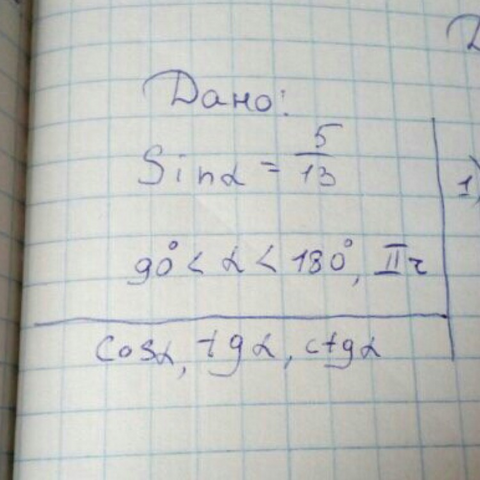 Дано:
Sinα = 5/13
90° < α < 180°, II ч
1)
cosα, tgα, ctgα